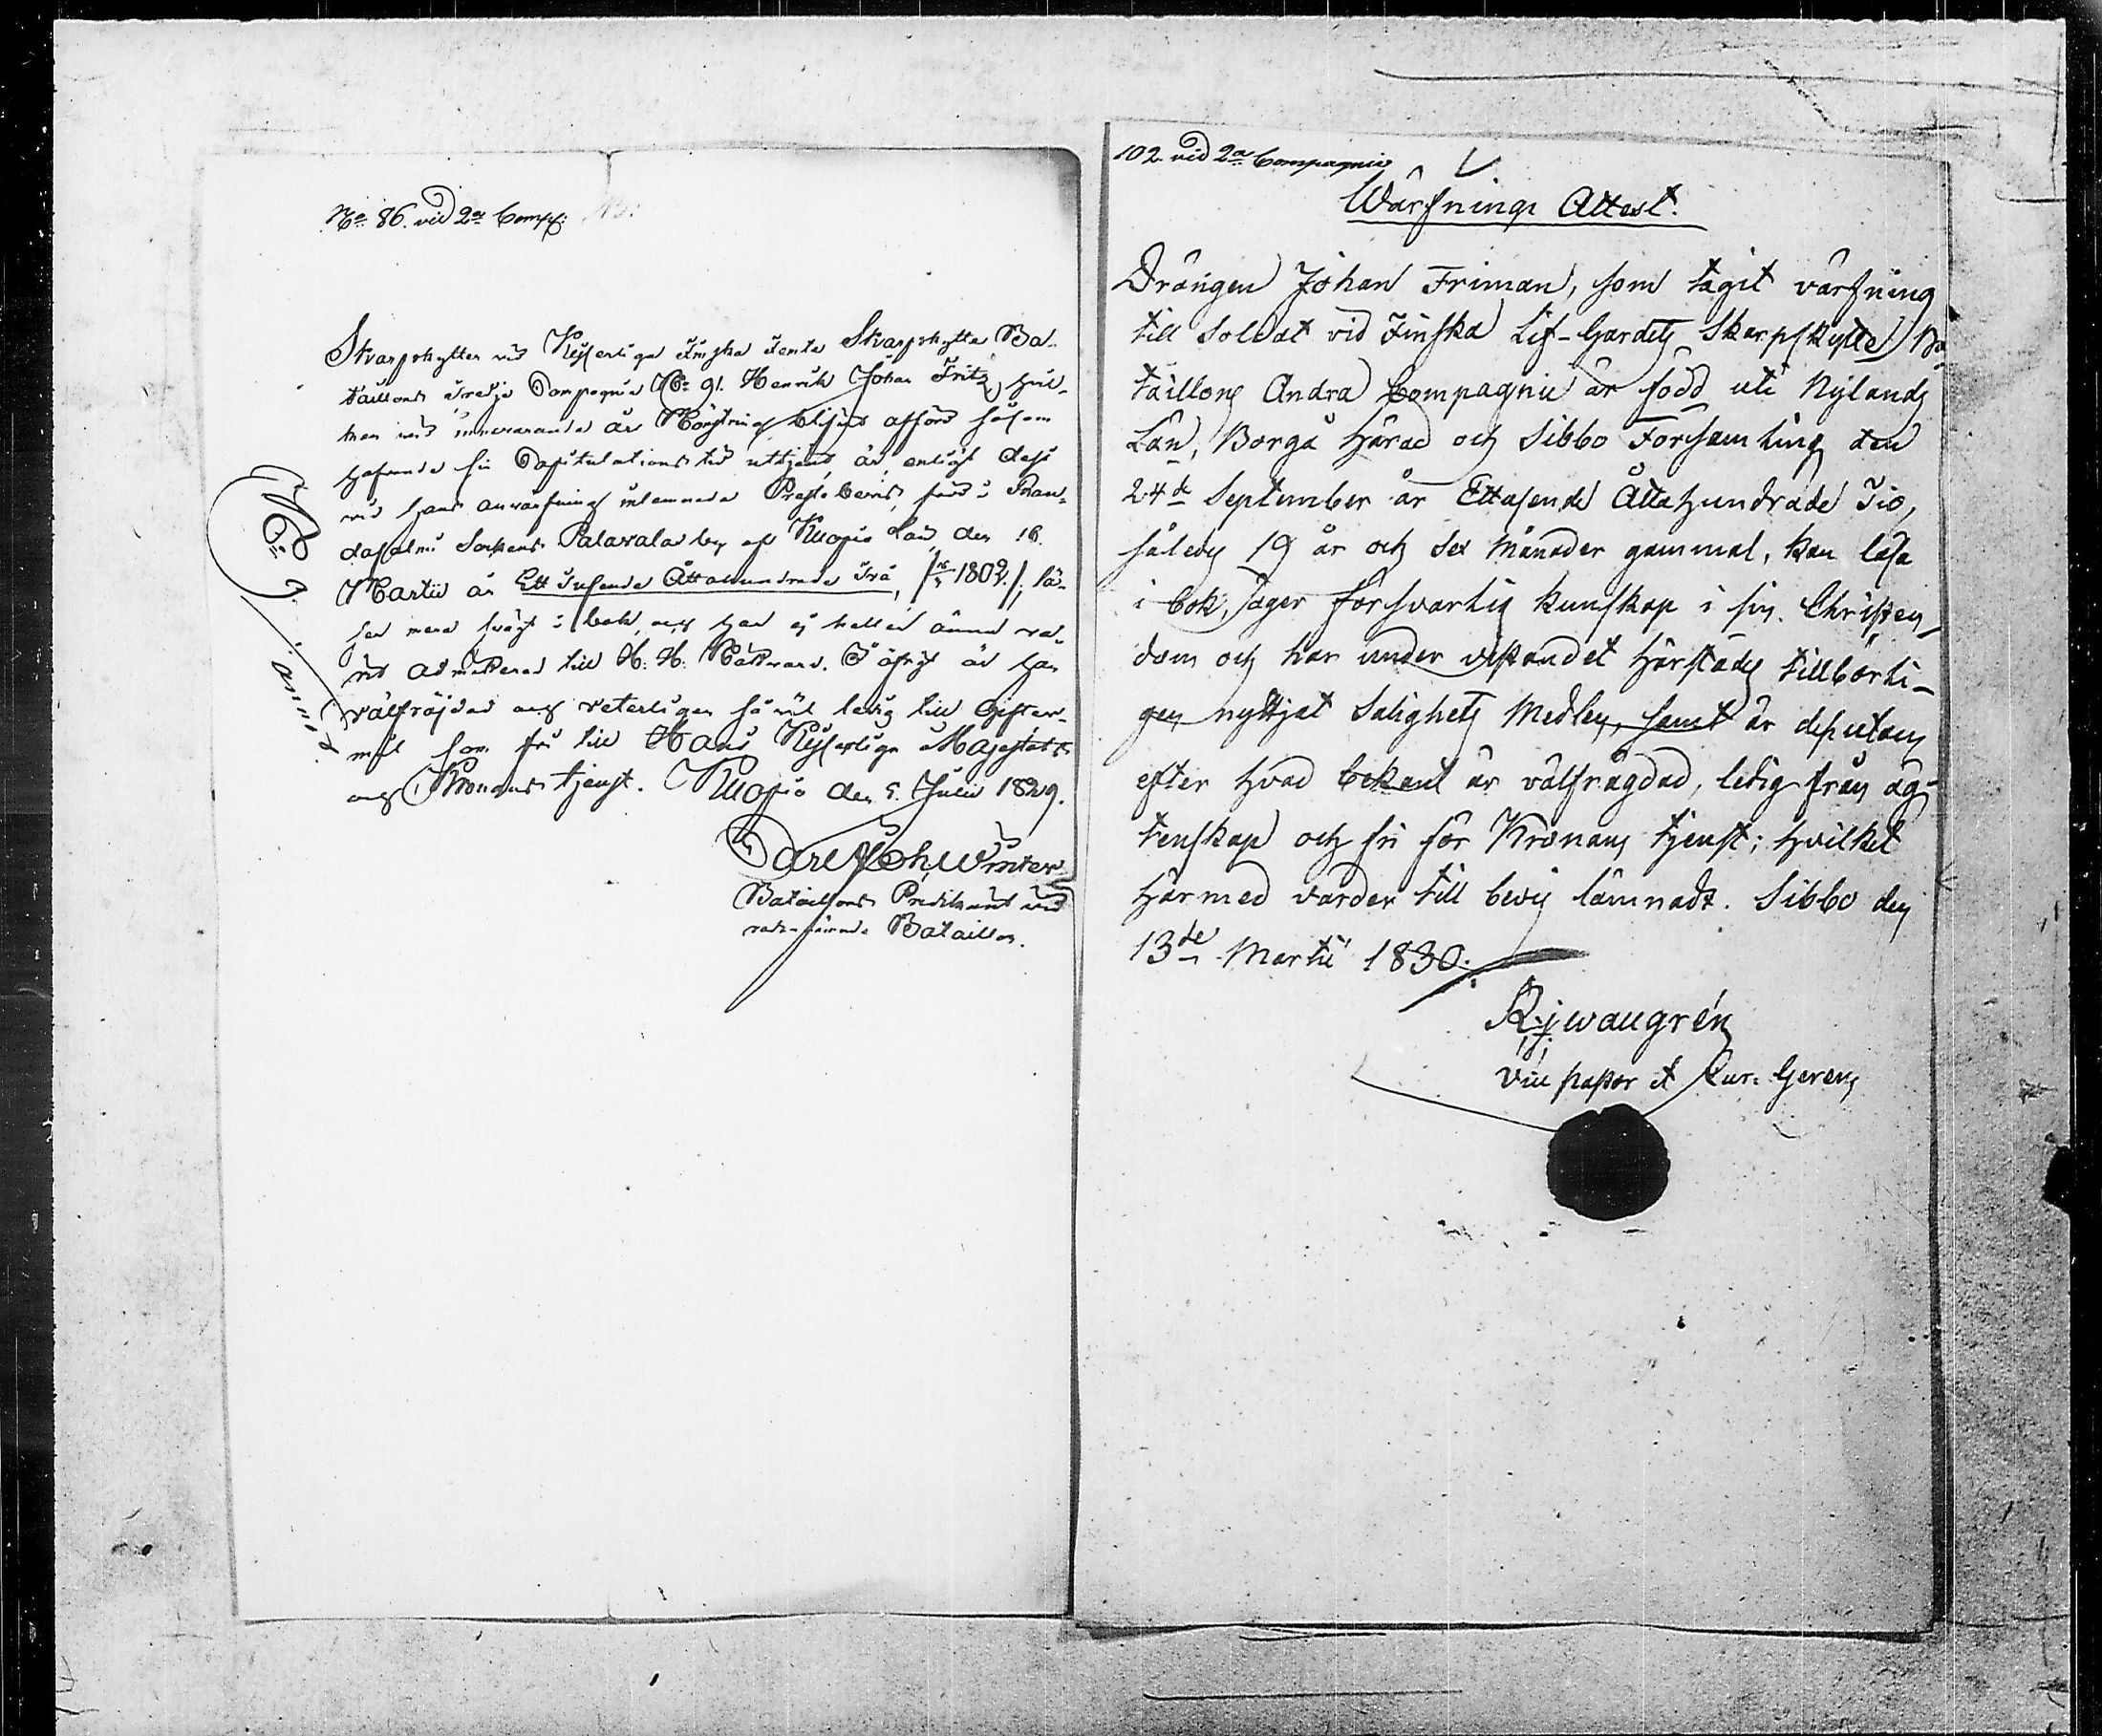 No 86. vid 2a Comp:
Skarpskytten vid Kejserliga Finska Femte Skarpskytte Ba-
taillons Tredje Compagnie No 91. Henrik Johan Fritz, hvil-
ken vid innevarande års Mönstring blifvit afförd såsom
hafvande sin Capitulations tid uttjent, är, enligt dess
vid hans anvärfning inlemnade Prestebevis, född i Pran-
dasalmi Sockens Palavala by af Kuopio Län, den 16.
Martii år Ett Tusende Ottahundrade Två, /: 16/3 1802. :/, lä-
ser mera svagt i bok, och har ej heller ännu va-
rit admitterad till H. H. Nattvard. I öfrigt är han
välfräjdad och veterligen så väl ledig till Gifter-
mål som fri till Hans Kejserliga Majestäts
och Kronans tjenst. Kuopio den 5. Julii 1829.
Carl Joh. Winter
Bataillons Predikant vid
Bataillon.
No 9.
102. vid 2a Compagnie
Wärfnings Attest.
Drängen Johan Friman, som tagit värfning
till Soldat vid Finska Lif-Gardets Skarpskytte Ba-
taillons Andra Compagnie är född uti Nylands
Län, Borgå Härad och Sibbo Församling den
24de September år Ettusende Åttahundrade Tio,
således 19 år och sex Månader gammal, kan läsa
i bok, äger försvarlig kunskap i sin Christen-
dom och har under vistandet härstädes tillbörli-
gen nyttjat Salighets Medlen, samt är dessutom
efter hvad bekant är välfrägdad, ledig från äg-
tenskap och fri för Kronans tjenst; hvilket
härmed varder till bevis lämnadt. Sibbo den
13de Martii 1830.
vice pastor et Cur. Gerens